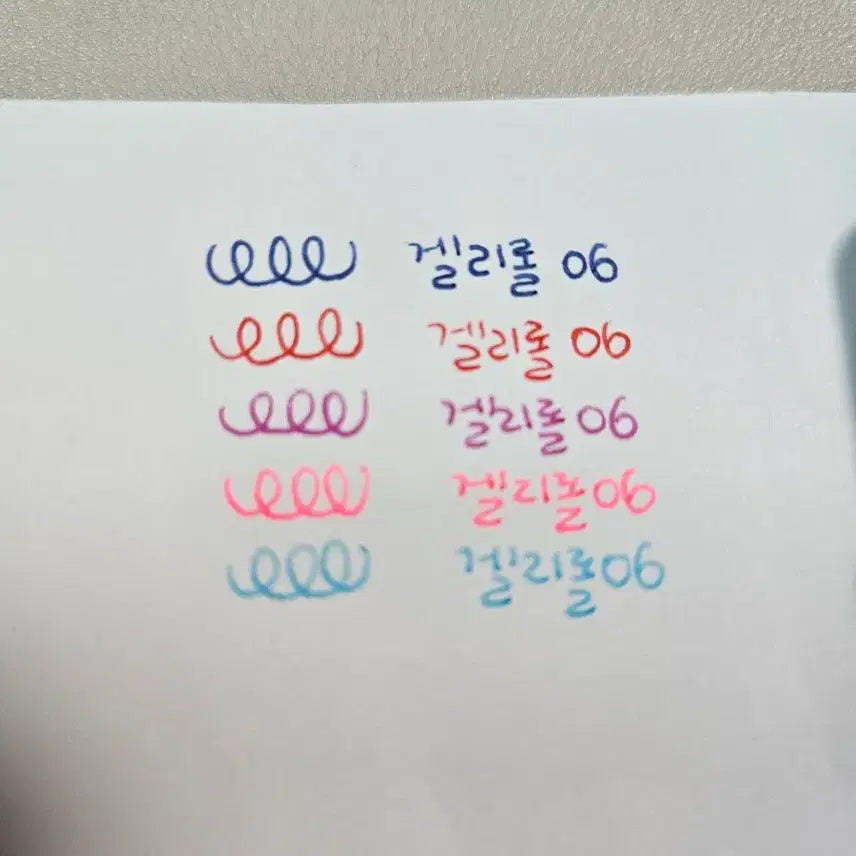 겔리롤 06
겔리롤 06
겔리롤 06
겔리롤 06
겔리롤 06